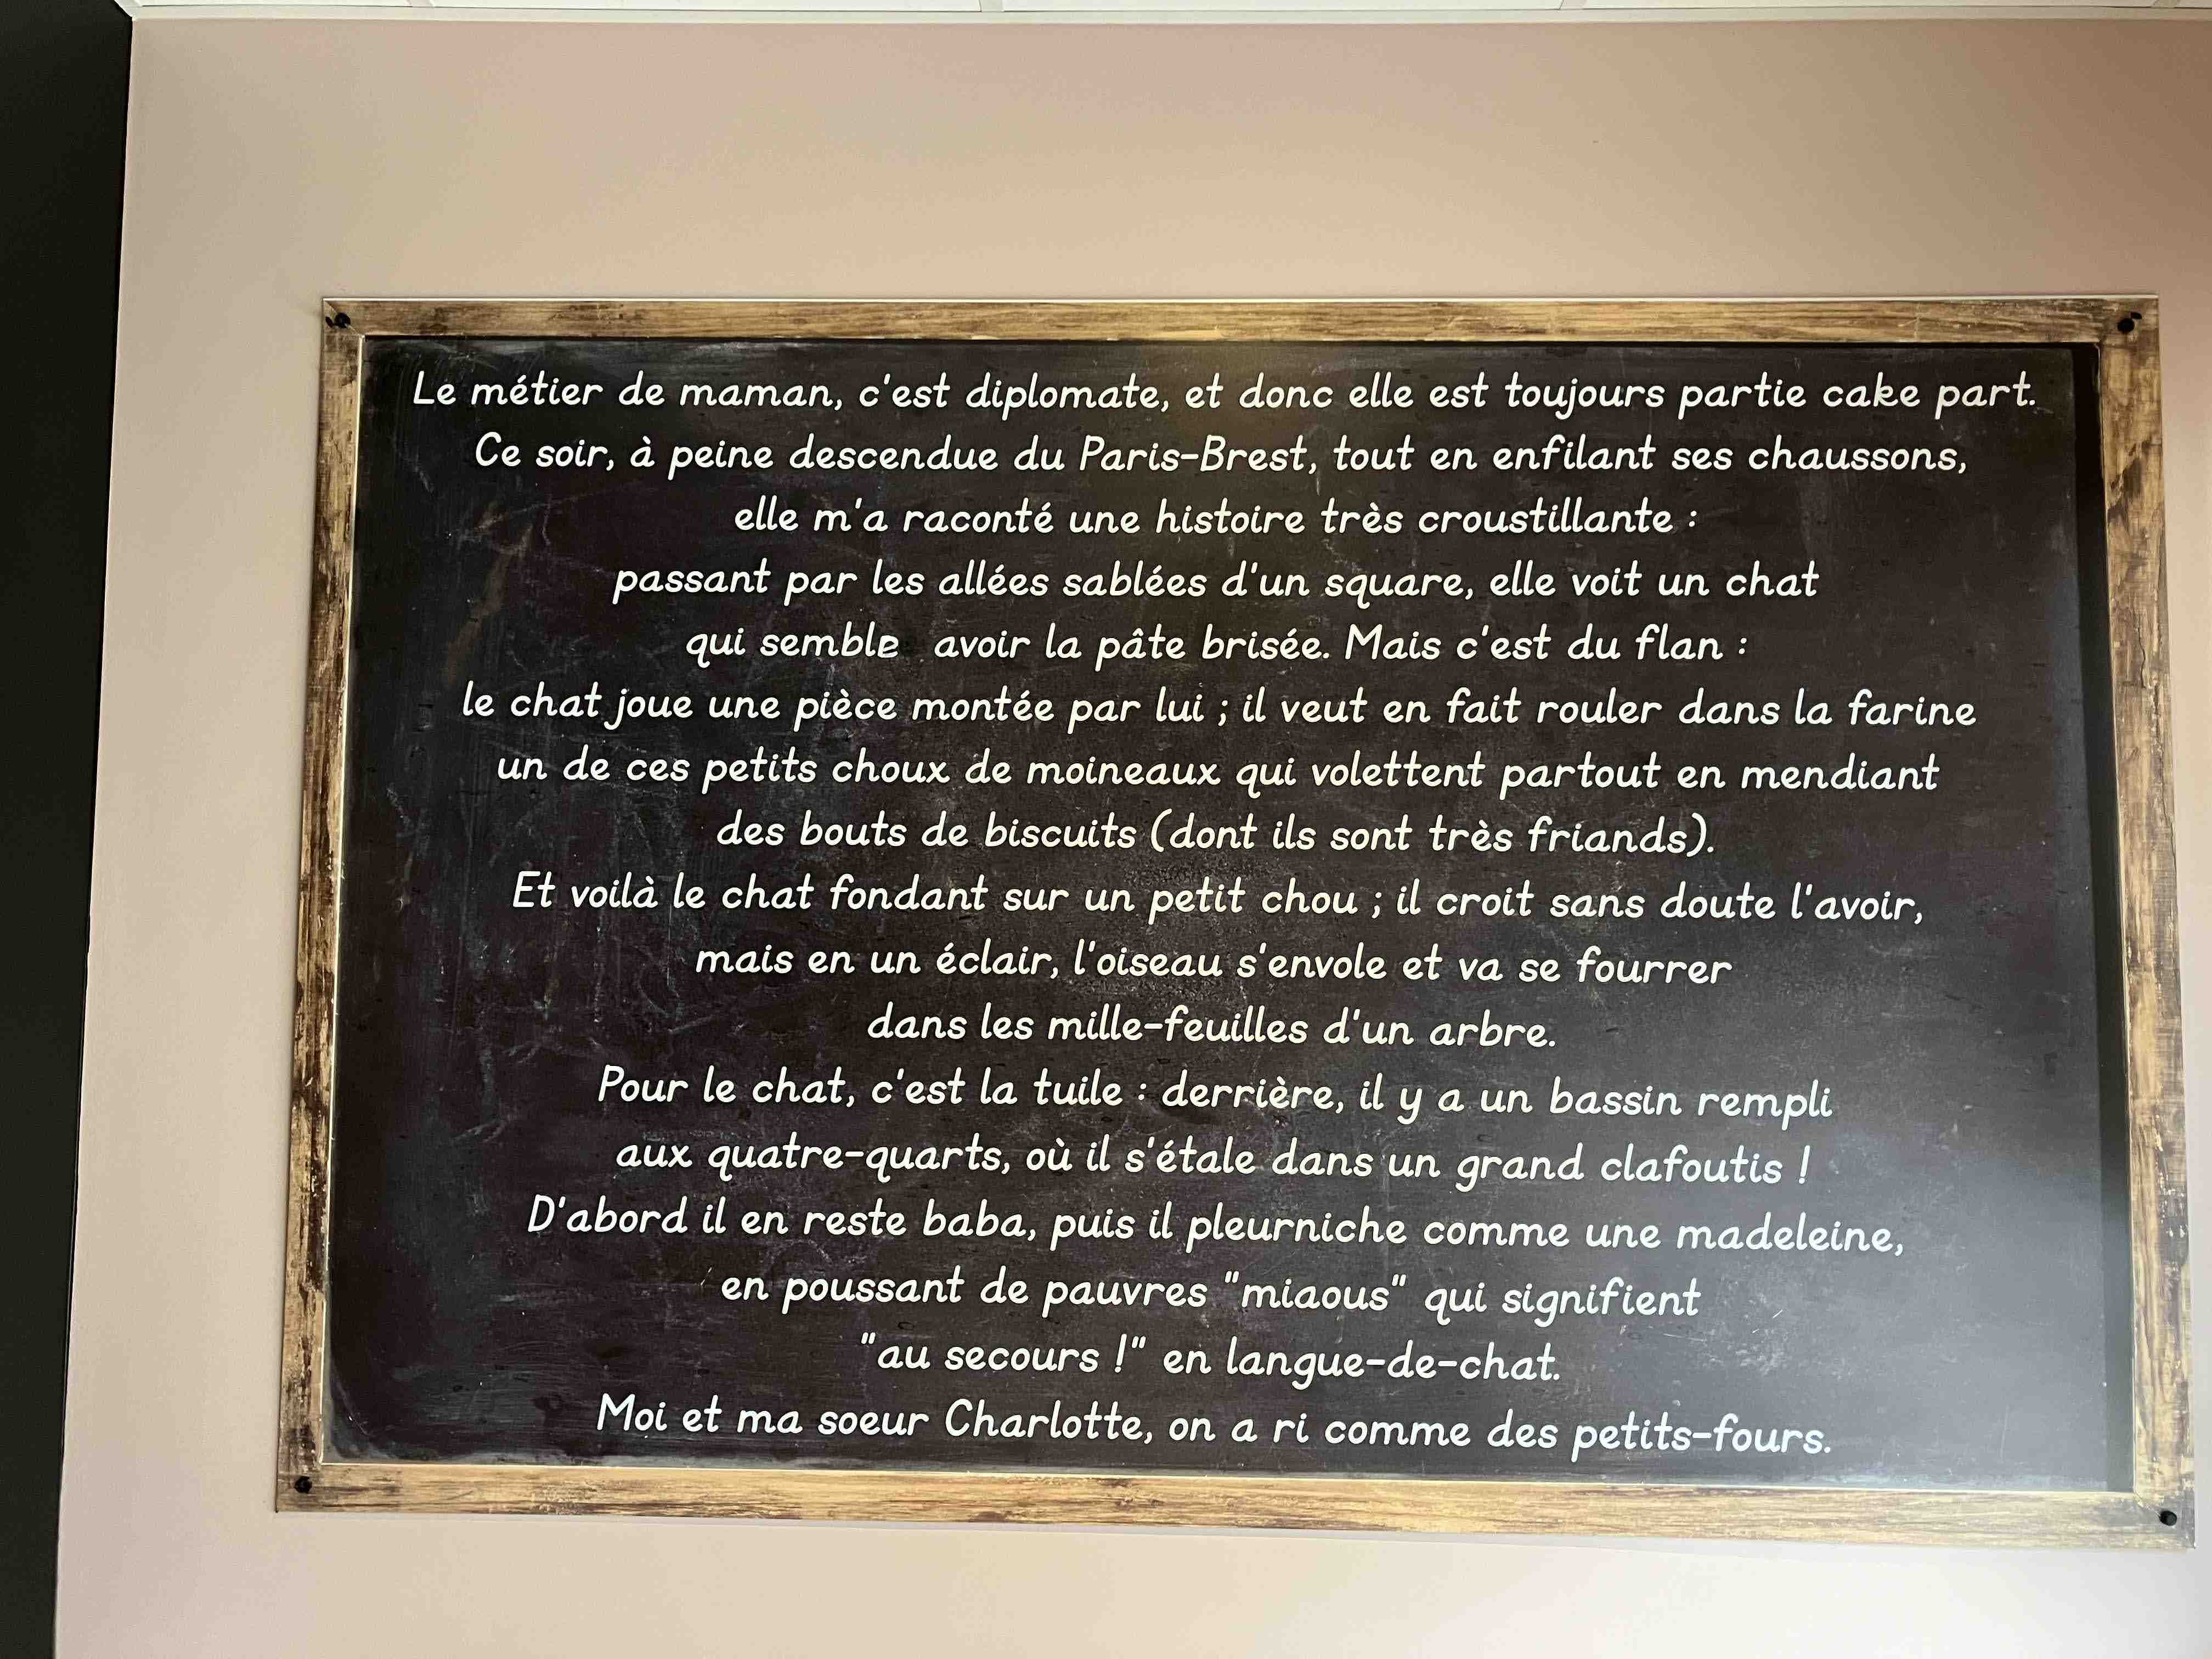 Le métier de maman, c'est diplomate, et donc elle est toujours partie cake part.
Ce soir, à peine descendue du Paris-Brest, tout en enfilant ses chaussons,
elle m'a raconté une histoire très croustillante :
passant par les allées sablées d'un square, elle voit un chat
qui semble avoir la pâte brisée. Mais c'est du flan :
le chat joue une pièce montée par lui ; il veut en fait rouler dans la farine
un de ces petits choux de moineaux qui volettent partout en mendiant
des bouts de biscuits (dont ils sont très friands).
Et voilà le chat fondant sur un petit chou ; il croit sans doute l'avoir,
mais en un éclair, l'oiseau s'envole et va se fourrer
dans les mille-feuilles d'un arbre.
Pour le chat, c'est la tuile : derrière, il y a un bassin rempli
aux quatre-quarts, où il s'étale dans un grand clafoutis !
D'abord il en reste baba, puis il pleurniche comme une madeleine,
en poussant de pauvres "miaous" qui signifient
"au secours !" en langue-de-chat.
Moi et ma soeur Charlotte, on a ri comme des petits-fours.